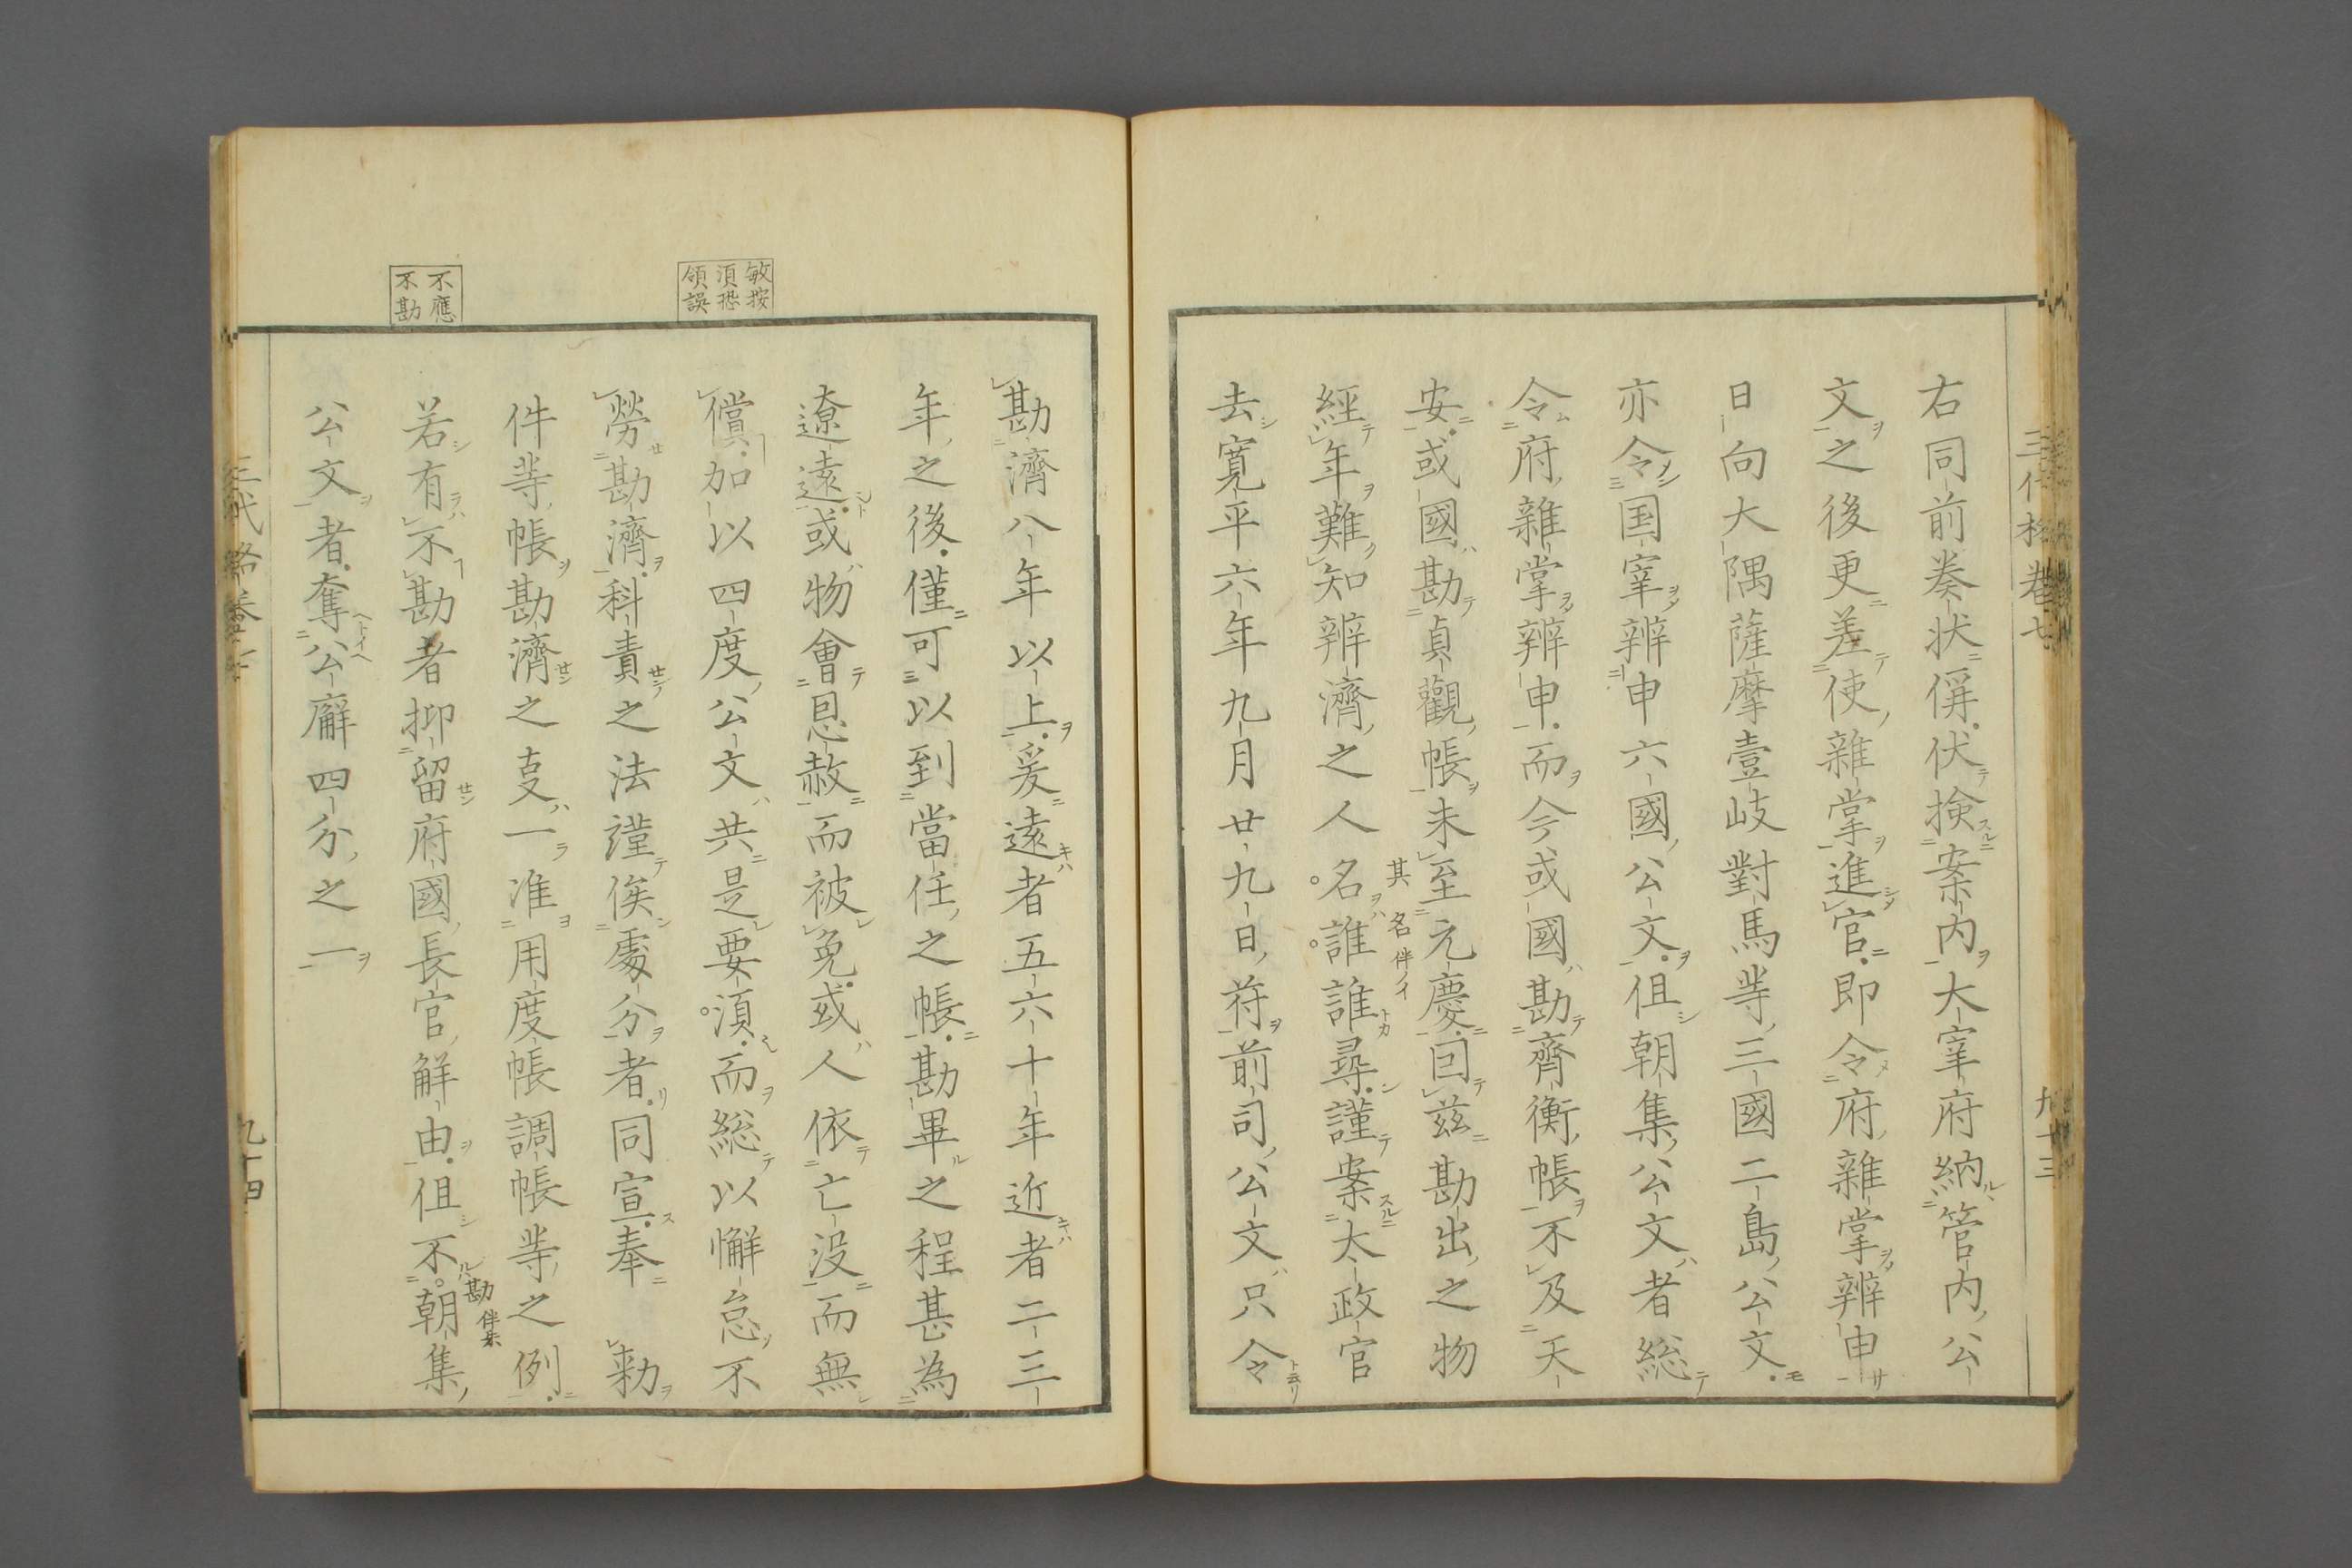 右同前奏状偁伏検案内大宰府納管内公
文之後更差使雜掌進官即令府雜掌辨申
日向大隅薩摩壹岐對馬䒭三國二島公文
亦令国宰辨申六國公文但朝集公文者総
令府雜掌辨申而今或國勘齊衡帳不及天
安或國勘貞觀帳未至元慶囙茲勘出之物
經年難知辨濟之人名誰誰尋謹案太政官
其名伴ノイ
去寛平六年九月廿九日符前司公文只令
敏按
須恐
領誤
不應
不勘
勘濟八年以上爰遠者五六十年近者二三
年之後僅可以到當任之帳勘畢之程甚為
遼遠或物會恩赦而被免或人依亡没而無
償加以四度公文共是要須而総以懈怠不
勞勘濟科責之法謹俟處分者同宣奉 勅
件䒭帳勘濟之㕝一准用度帳調帳䒭之例
若有不勘者抑留府國長官解由但不朝集
勘
公文者奪公廨四分之一